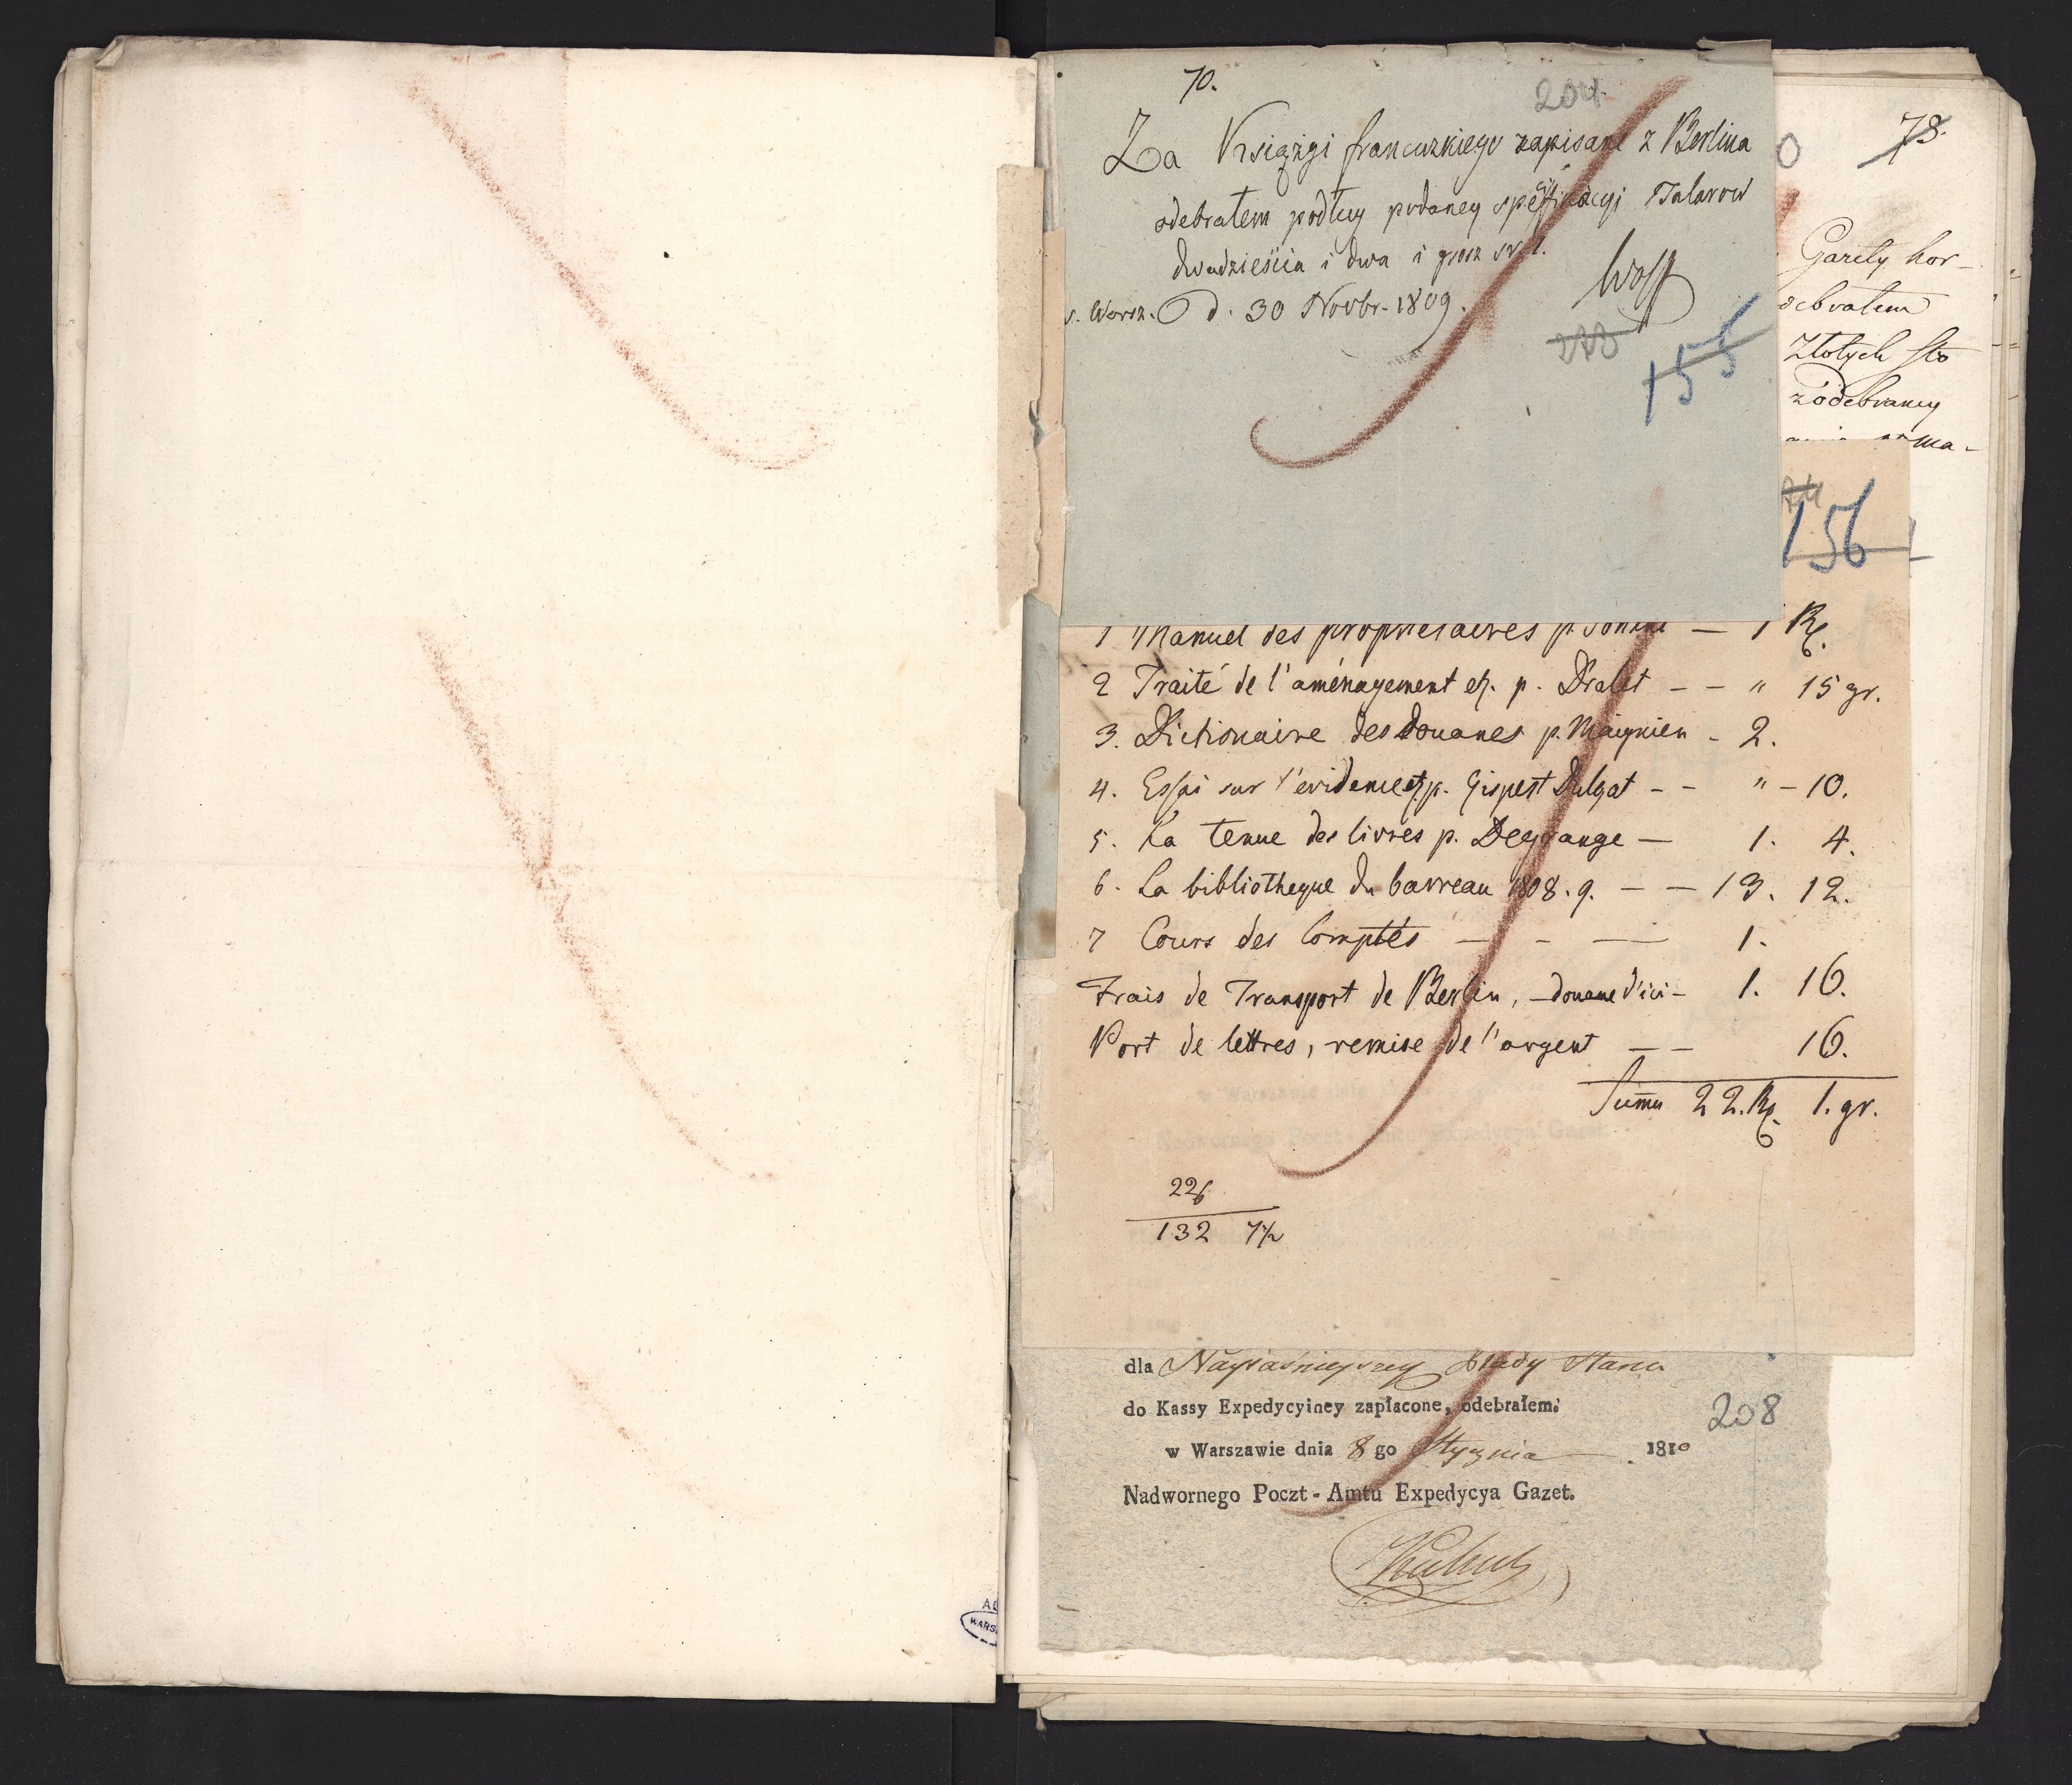 70.
204
Za Książgi francuzkiego zapisane z Berlina
odebrałem podług podaney specifikacyi Talarow
dwadzieścia i dwa i grosz sr. 1.
w. Warsz. d. 30 Novbr. 1809.
Wolff
273
155
0
78.
Gazety hor-
odebrałem
Złotych sto
zodebraney
ma-
74
156
1 Manuel des proprietaires p. Sonini — 1 Rt.
2 Traité de l'aménagement etc. p. Dralet - - " 15 gr.
3. Dictionaire des douanes p. Maignien - 2.
4. Essai sur l'evidence etc. p. Gispert Dulçat - - " - 10.
5. La tenue des livres p. Degrange — 1. 4.
6. La bibliotheque du barreau 1808. 9. - — 13. 12.
7 Cours des Comptes — - — 1.
Frais de Transport de Berlin, - douane d'ici - 1. 16.
Port de lettres, remise de l'argent — — 16.
Suma 22. Rt. 1. gr.
22 6
132 7½
dla Nayiaśnieyszey Rady Stanu
do Kassy Expedycyiney zapłacone, odebrałem.
208
w Warszawie dnia 8 go Stycznia 1810
Nadwornego Poczt-Amtu Expedycya Gazet.
WARS